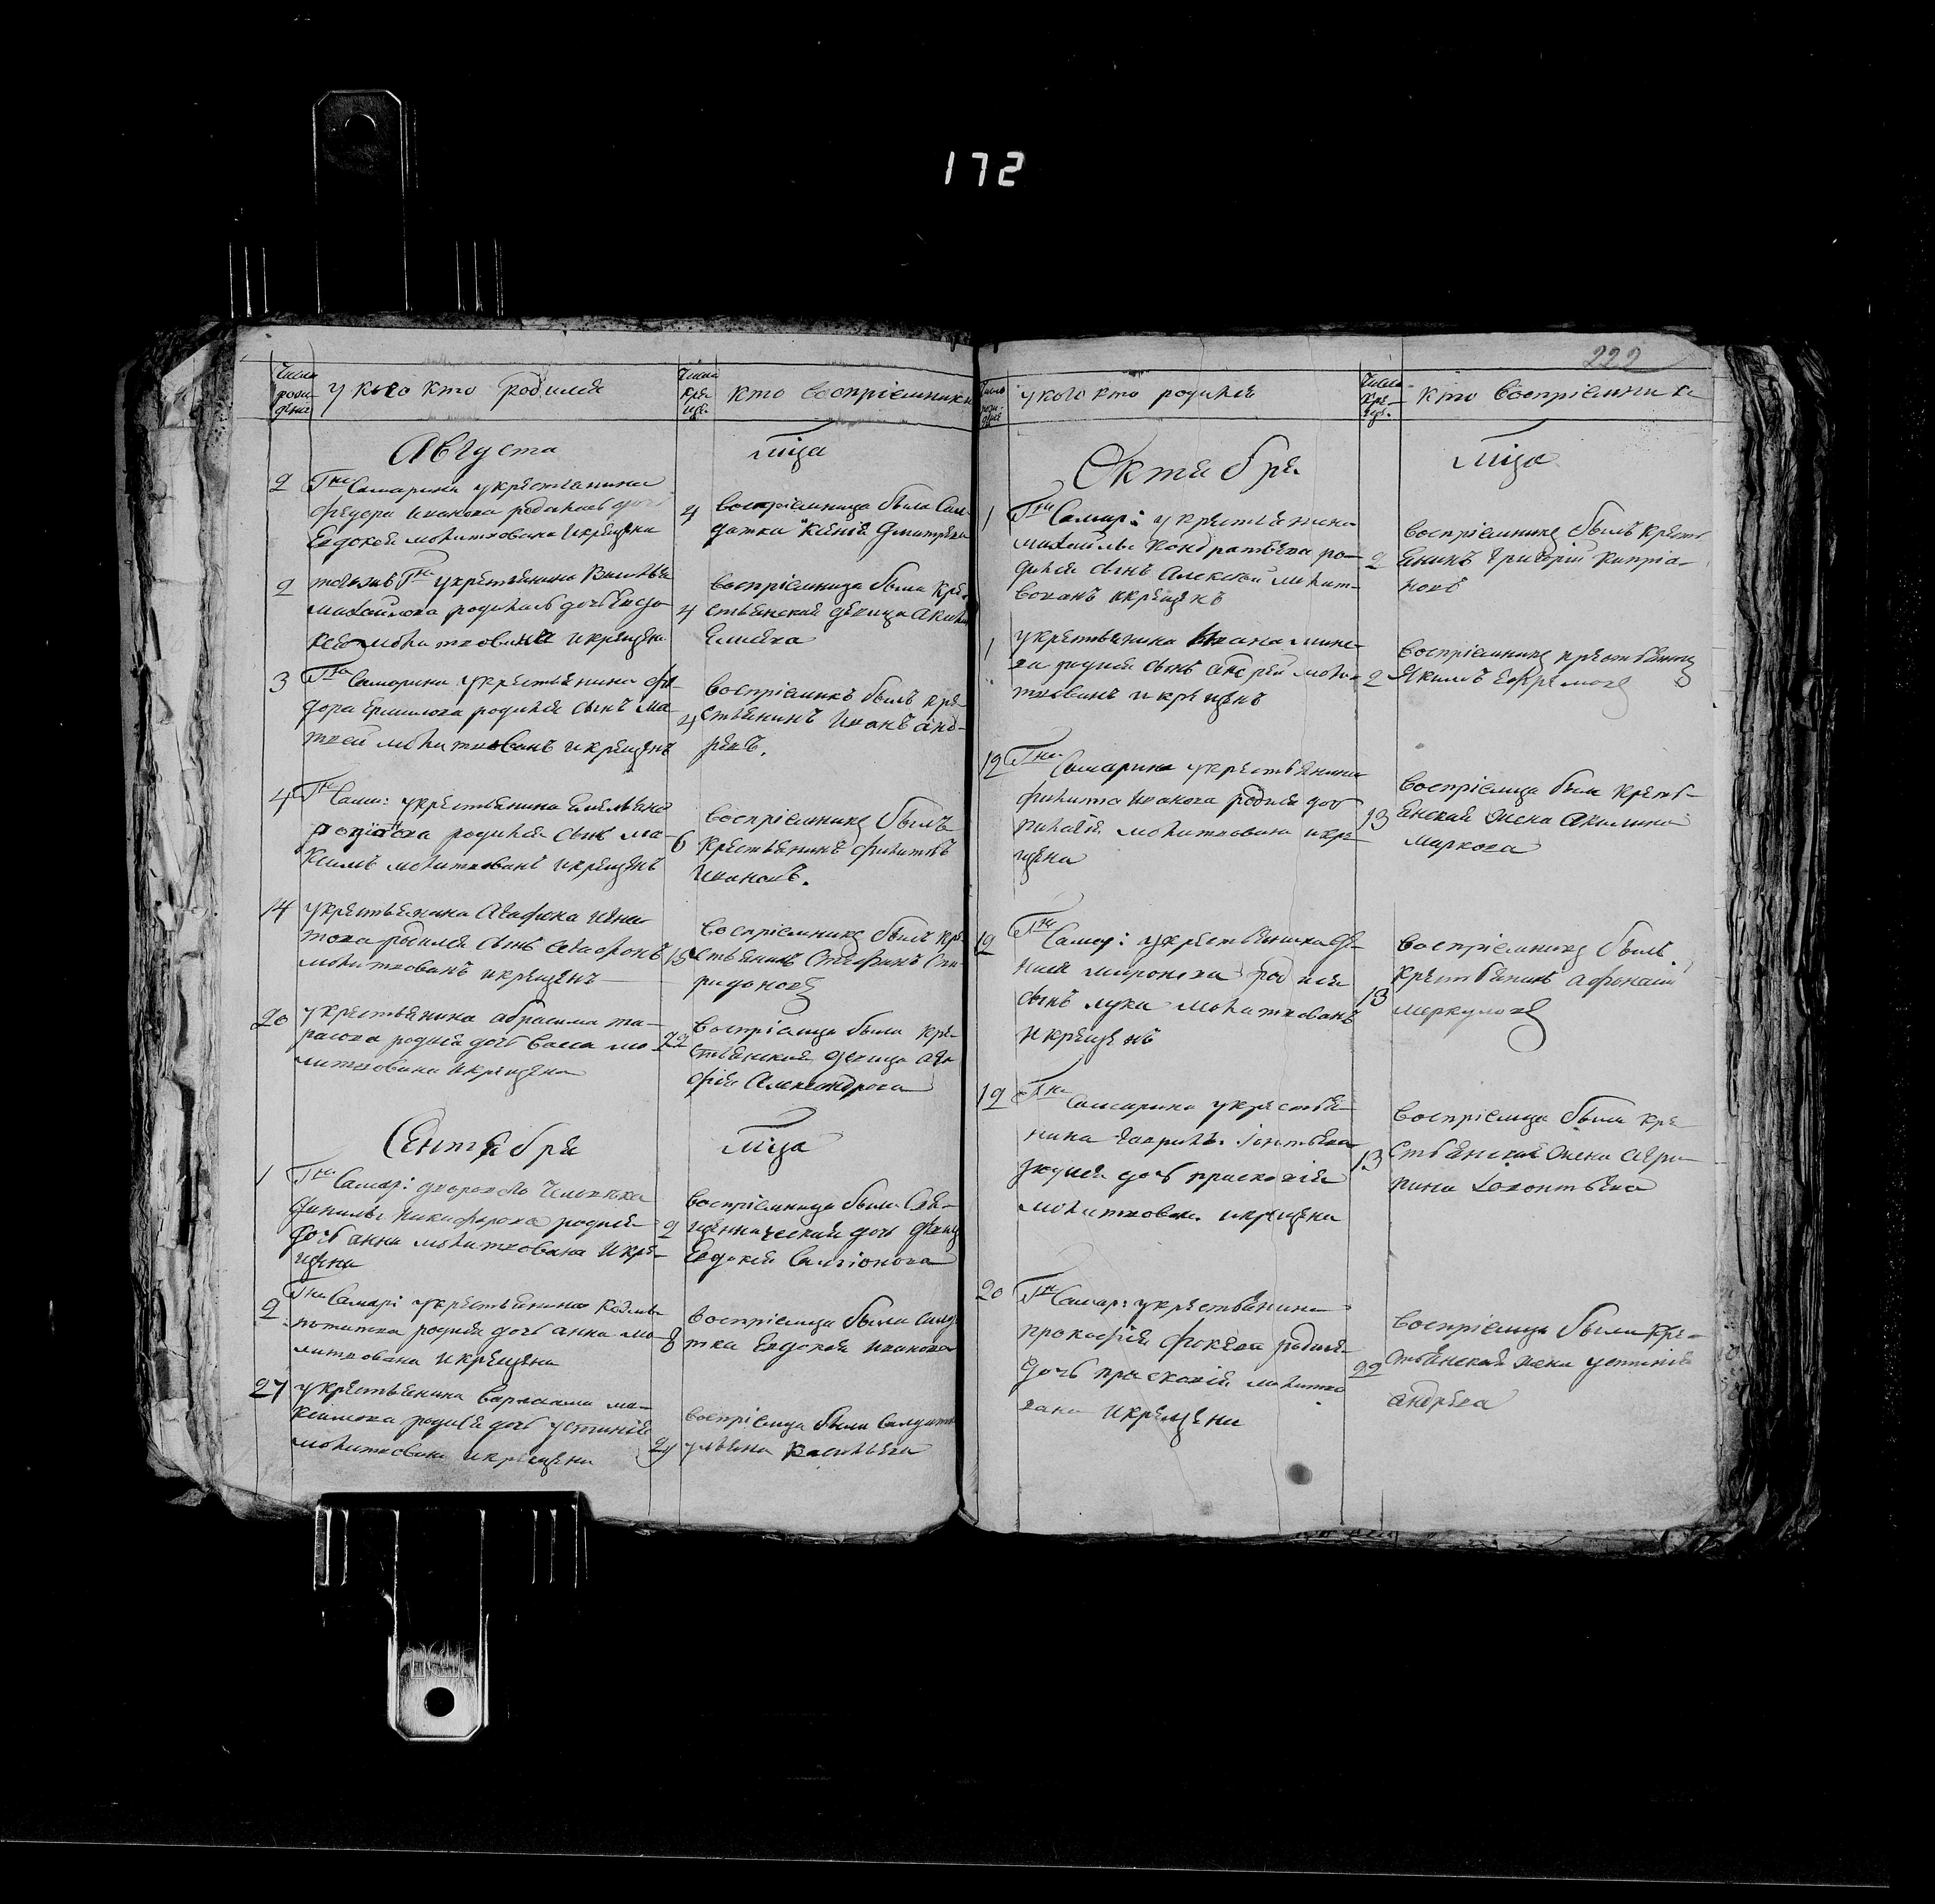 172
Число рождения
у кого кто родился
Число креще.
кто восприемники
Августа
мца
2
Гна Самарина у крестьянина
Федора Иванова родилась дочь
Евдокея молитвована и крещена
4
восприемница была Сол-
датка Ксенія Дмитріева
2
тогожъ Гна у крестьянина Василья
Михайлова родилась дочь Евдо
молитвована и крещена
4
восприемница была кре-
стьянская девица Акилина
Елисеева
3
Гна Самарина у крестьянина Фе-
дора Ермилова родился сынъ Ма-
твей молитвованъ и крещенъ
4
восприемникъ былъ кре-
стьянинъ Иванъ Анд-
реевъ.
4
Гна Сама: у крестьянина Емельяна
родился сынъ Ма-
ксимъ молитвованъ и крещенъ
6
восприемникъ былъ
крестьянинъ Филиппъ
Ивановъ.
14
у крестьянина Агафона Игна
това родился сынъ молитвованъ и крещенъ
15
восприемникъ былъ кре-
стьянинъ Стефанъ Спи-
ридоновъ
20
у крестьянина Абрасима Та-
расова родися дочь Васса мо
литвована и крещена
22
восприемница была кре-
стьянская девица Ага
фія Александрова
Сентября
мца
1
Гна Самар: дворового человека
Данилы Никифорова родися
дочь Анна молитвована и кре-
щена
2
восприемница была Свя-
щенническая дочь девица
Евдокея Симіонова
2
Гна Самар: у крестьянина
родися дочь Анна мо-
литвована и крещена
8
восприемница была
Евдокея Иванова
27
у крестьянина Варлаама Ма-
ксимова родися дочь Устинія
молитвована и крещена
29
восприемница была Солдатка
Ульяна Васильева
222
Число рождения
у кого кто родился
Число креще.
кто восприемники
Октября
мца
1
Гна Самар: у крестьянина
Михайлы Кондратьева ро-
дился сынъ Алексей молит-
вованъ и крещенъ
2
восприемникъ былъ кресть
янинъ Григорій Кипріа-
новъ
1
у крестьянина Ивана Мине-
ва родися сынъ Андрей моли-
твованъ и крещенъ
2
восприемникъ крестьянинъ
Якимъ Ефремовъ
12
Гна Самарина у крестьянина
Филиппа Иванова родися дочь
Пелагея молитвована и кре-
щена
13
восприемница была кресть-
янская жена Акилина
Маркова
12
Гна Самар: у крестьянина
Миронова родися
сынъ Лука молитвованъ
и крещенъ
13
восприемникъ былъ
крестьянинъ Афонасій
Меркуловъ
12
Гна
Самарина у крестья-
нина Гаврилы
родися дочь Прасковія
молитвована и крещена
13
восприемница была кре
стьянская жена Агри-
пина
20
Гна Самар: у крестьянина
Прокофія Фокеева родися
дочь Прасковія молитво
вана и крещена
22
восприемница была кре-
стьянская жена Устинія
Андреева